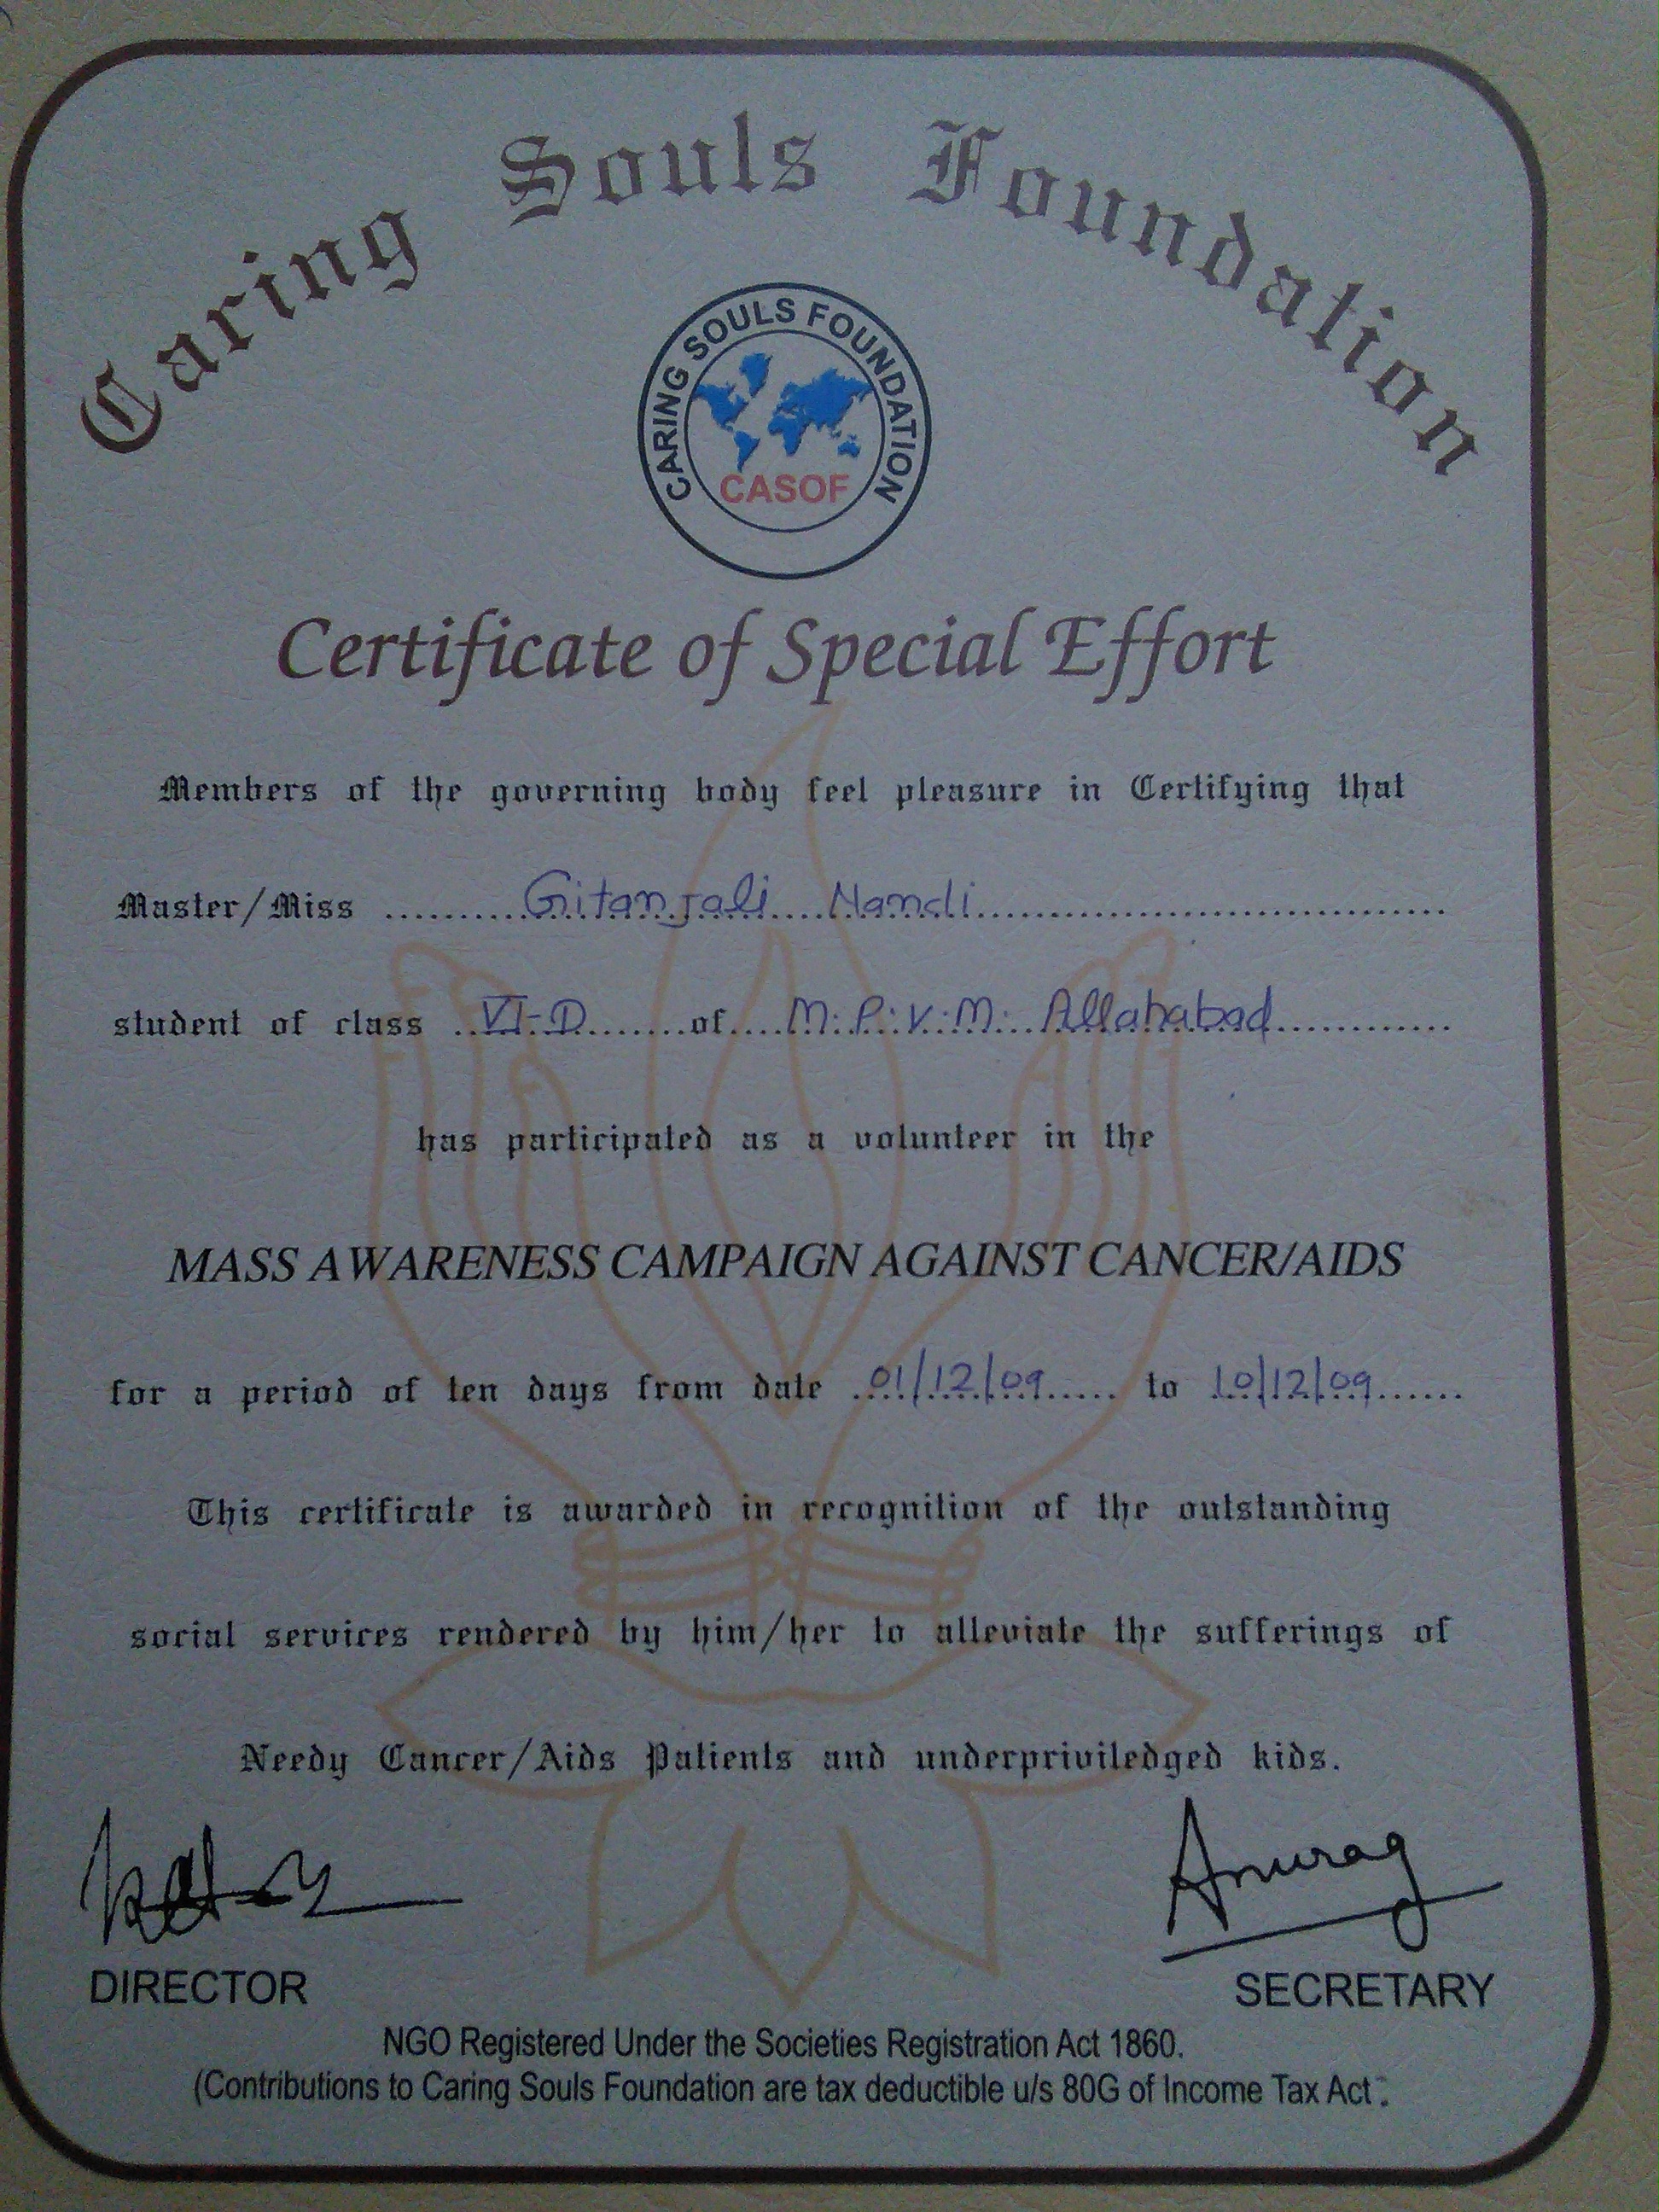 Caring Souls Foundation
CARING SOULS FOUNDATION
CASOF
Certificate of Special Effort
Members of the governing body feel pleasure in Certifying that
Master/Miss ..........Gitanjali....Nandi..................................
student of class ..VI-D.......of....M.P.V.M. Allahabad.............
has participated as a volunteer in the
MASS AWARENESS CAMPAIGN AGAINST CANCER/AIDS
for a period of ten days from date ..01/12/09..... to 10/12/09......
This certificate is awarded in recognition of the outstanding
social services rendered by him/her to alleviate the sufferings of
Needy Cancer/Aids Patients and underpriviledged kids.
Anurag
DIRECTOR SECRETARY
NGO Registered Under the Societies Registration Act 1860.
(Contributions to Caring Souls Foundation are tax deductible u/s 80G of Income Tax Act.